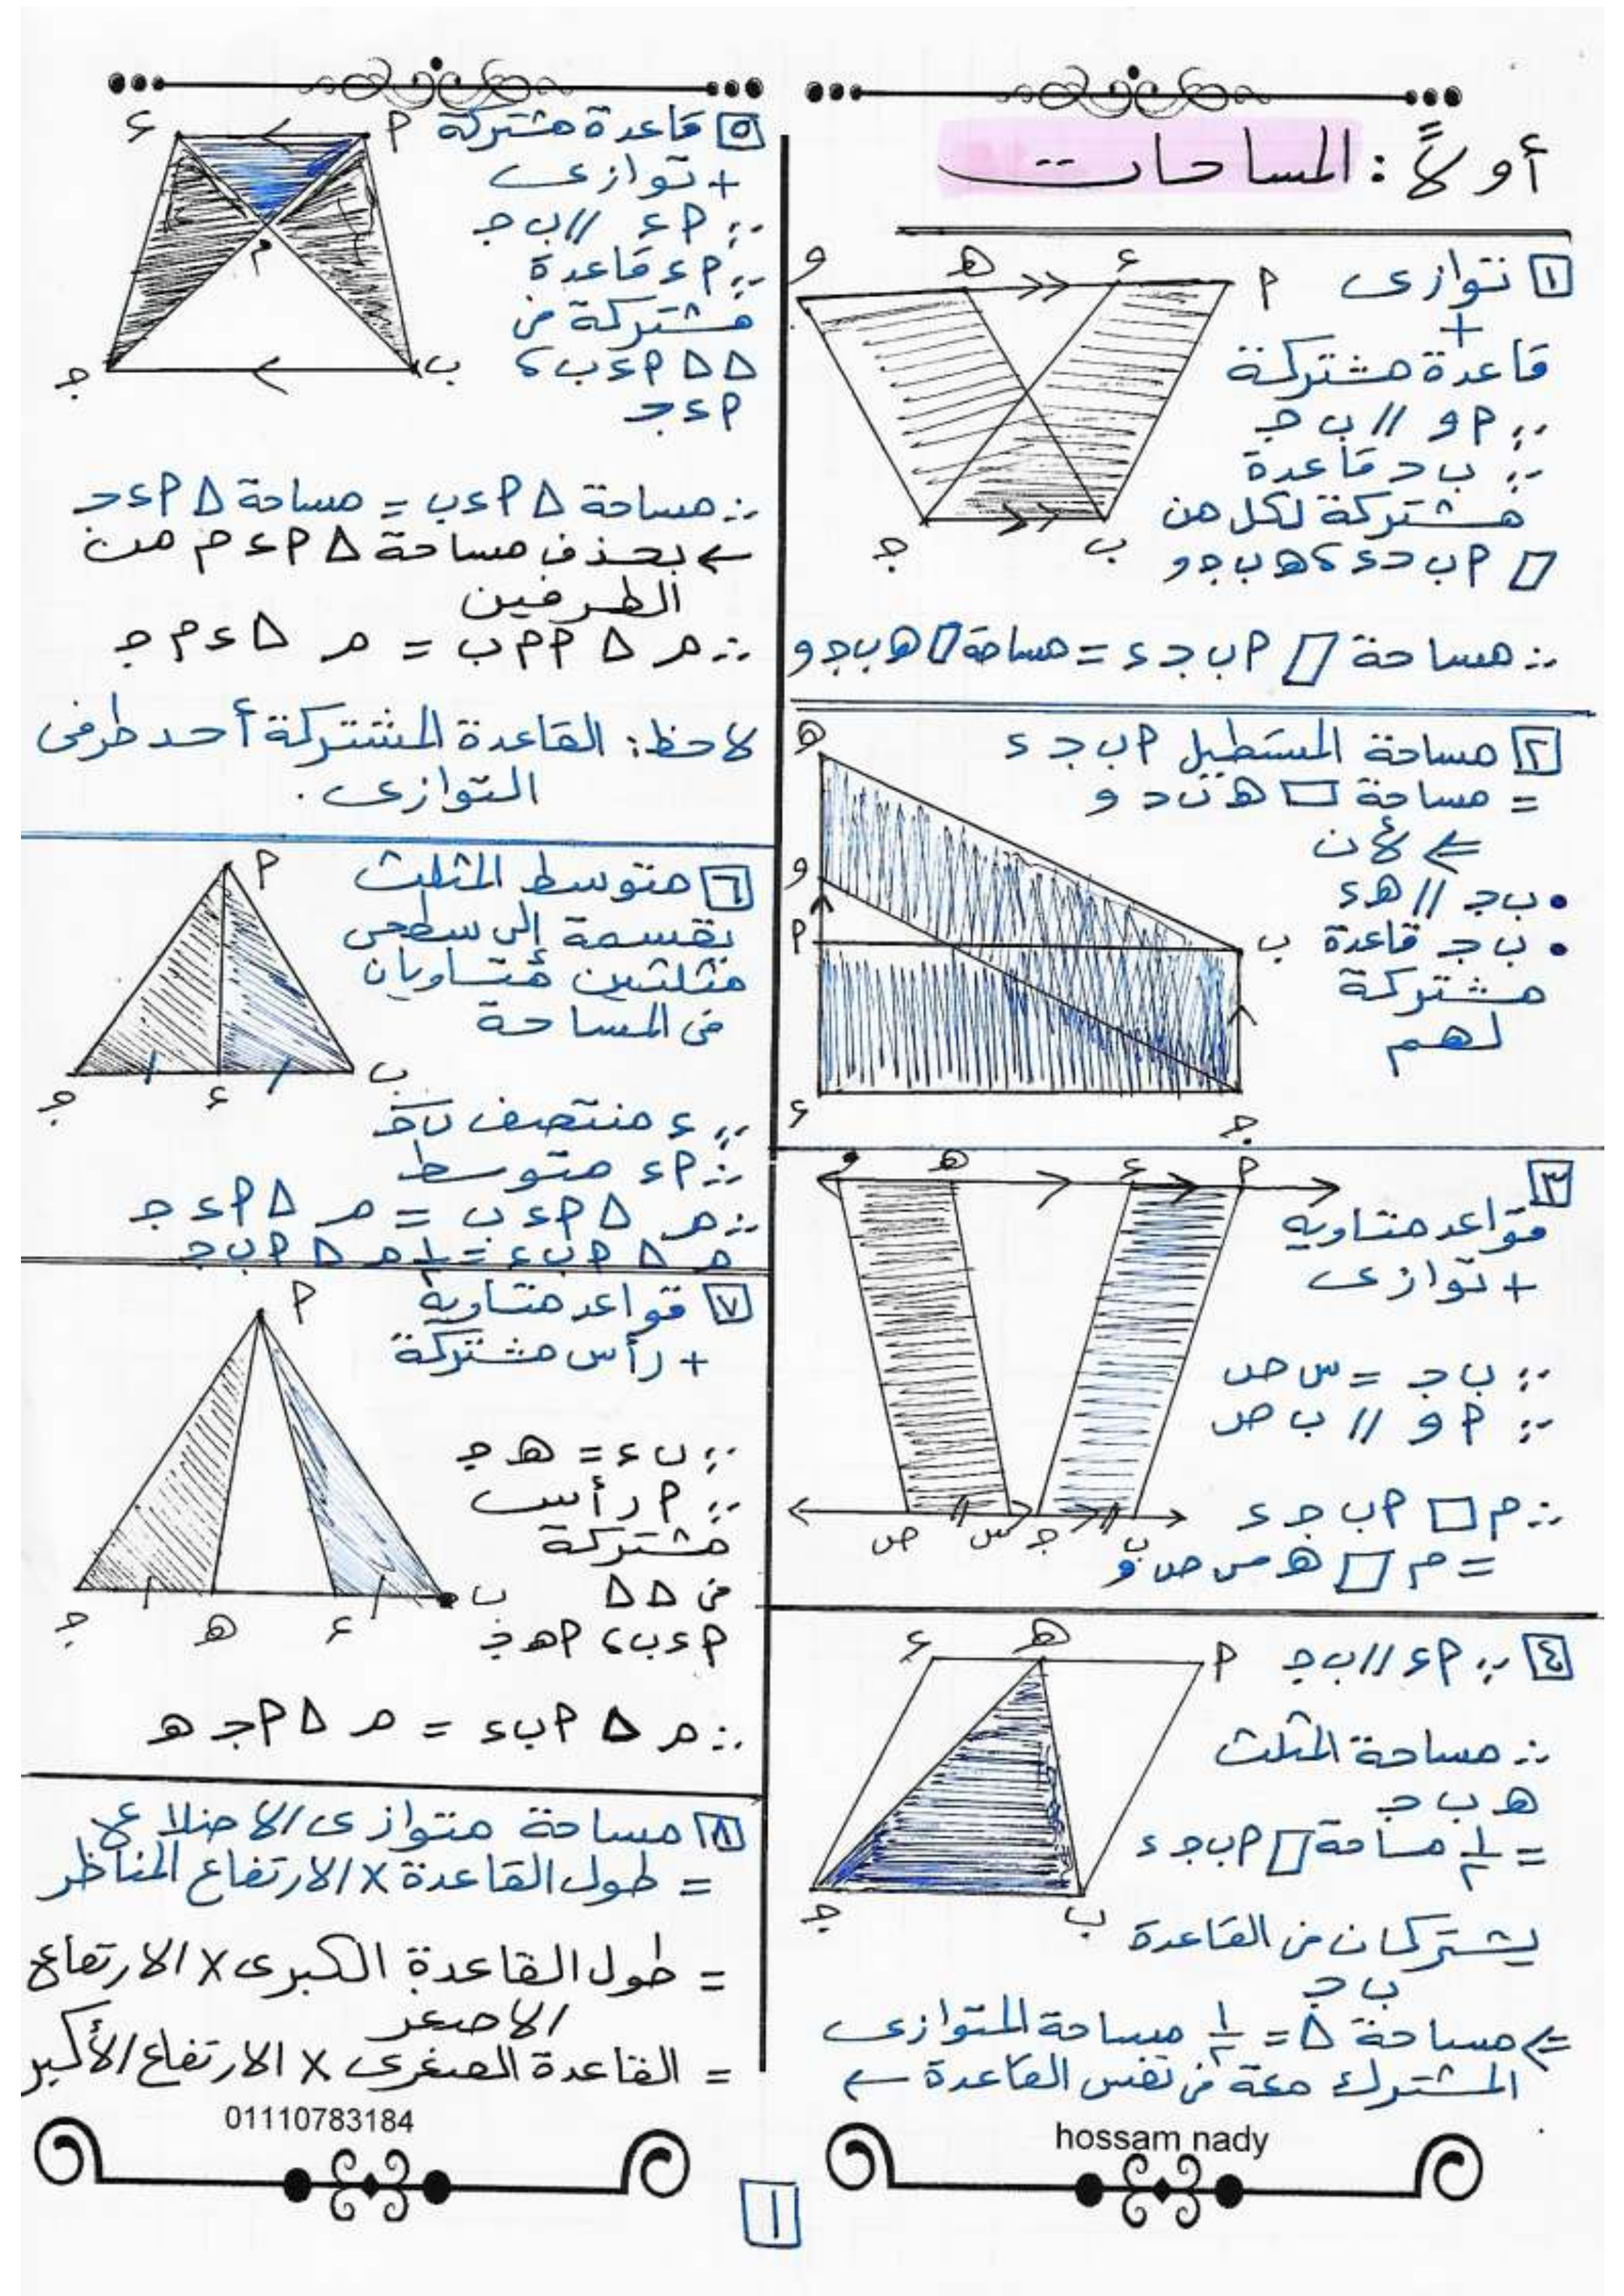 أولاً : المساحات
١ توازى
+
قاعدة مشتركة
∵ أو // ب جـ
∵ ب جـ قاعدة
مشتركة لكل من
▱ أ ب جـ ء ، هـ ب جـ و
∴ مساحة ▱ أ ب جـ ء = مساحة ▱ هـ ب جـ و
و هـ ء أ
جـ ب
٢ مساحة المستطيل أ ب جـ ء
= مساحة ▱ هـ ب جـ و
⇐ لأن
• ب جـ // هـ ء
• ب جـ قاعدة
مشتركة
لهم
هـ
و
أ ب
ء جـ
٣
قواعد متساوية
+ توازى
∵ ب جـ = س ص
∵ أ و // ب ص
∴ م ▱ أ ب جـ ء
= م ▱ هـ س ص و
و هـ ء أ
ص س جـ ب
٤ ∵ أ ء // ب جـ
∴ مساحة المثلث
هـ ب جـ
= ١/٢ مساحة ▱ أ ب جـ ء
يشتركان فى القاعدة
ب جـ
⇐ مساحة △ = ١/٢ مساحة المتوازى
المشترك معة فى نفس القاعدة ←
ء هـ أ
جـ ب
hossam nady
٥ قاعدة مشتركة
+ توازى
∵ أ ء // ب جـ
∵ أ ء قاعدة
مشتركة فى
△△ أ ء ب ،
أ ء جـ
∴ مساحة △ أ ء ب = مساحة △ أ ء جـ
← بحذف مساحة △ أ ء م من
الطرفين
∴ م △ أ م ب = م △ ء م جـ
لاحظ: القاعدة المشتركة أحد طرفى
التوازى .
ء أ
م
جـ ب
٦ متوسط المثلث
يقسمة إلى سطحى
مثلثين متساويان
فى المساحة
∵ ء منتصف ب جـ
∴ أ ء متوسط
∴ م △ أ ء ب = م △ أ ء جـ
م △ أ ب ء = ١/٢ م △ أ ب جـ
أ
جـ ء ب
٧ قواعد متساوية
+ رأس مشتركة
∵ ب ء = هـ جـ
∵ أ رأس
مشتركة
فى △△
أ ء ب ، أ هـ جـ
∴ م △ أ ب ء = م △ أ جـ هـ
أ
جـ هـ ء ب
٨ مساحة متوازى الاضلاع
= طول القاعدة × الارتفاع المناظر
= طول القاعدة الكبرى × الارتفاع
الاصغر
= القاعدة الصغرى × الارتفاع الأكبر
01110783184
١